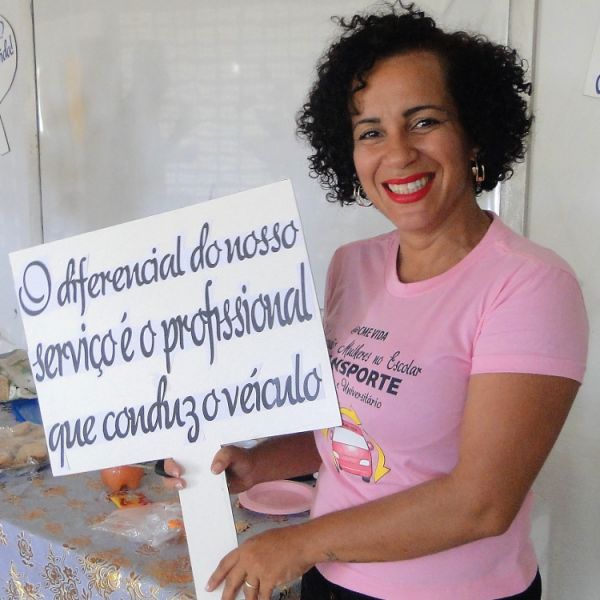 O diferencial do nosso
serviço é o profissional
que conduz o veículo
@CMEVIDA
Mulheres no Escolar
Universitário